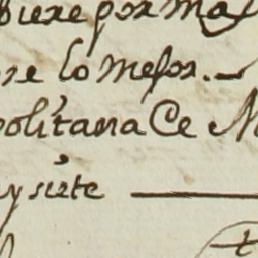 biere por ma
re lo mejor.
politana Ce M
y siete